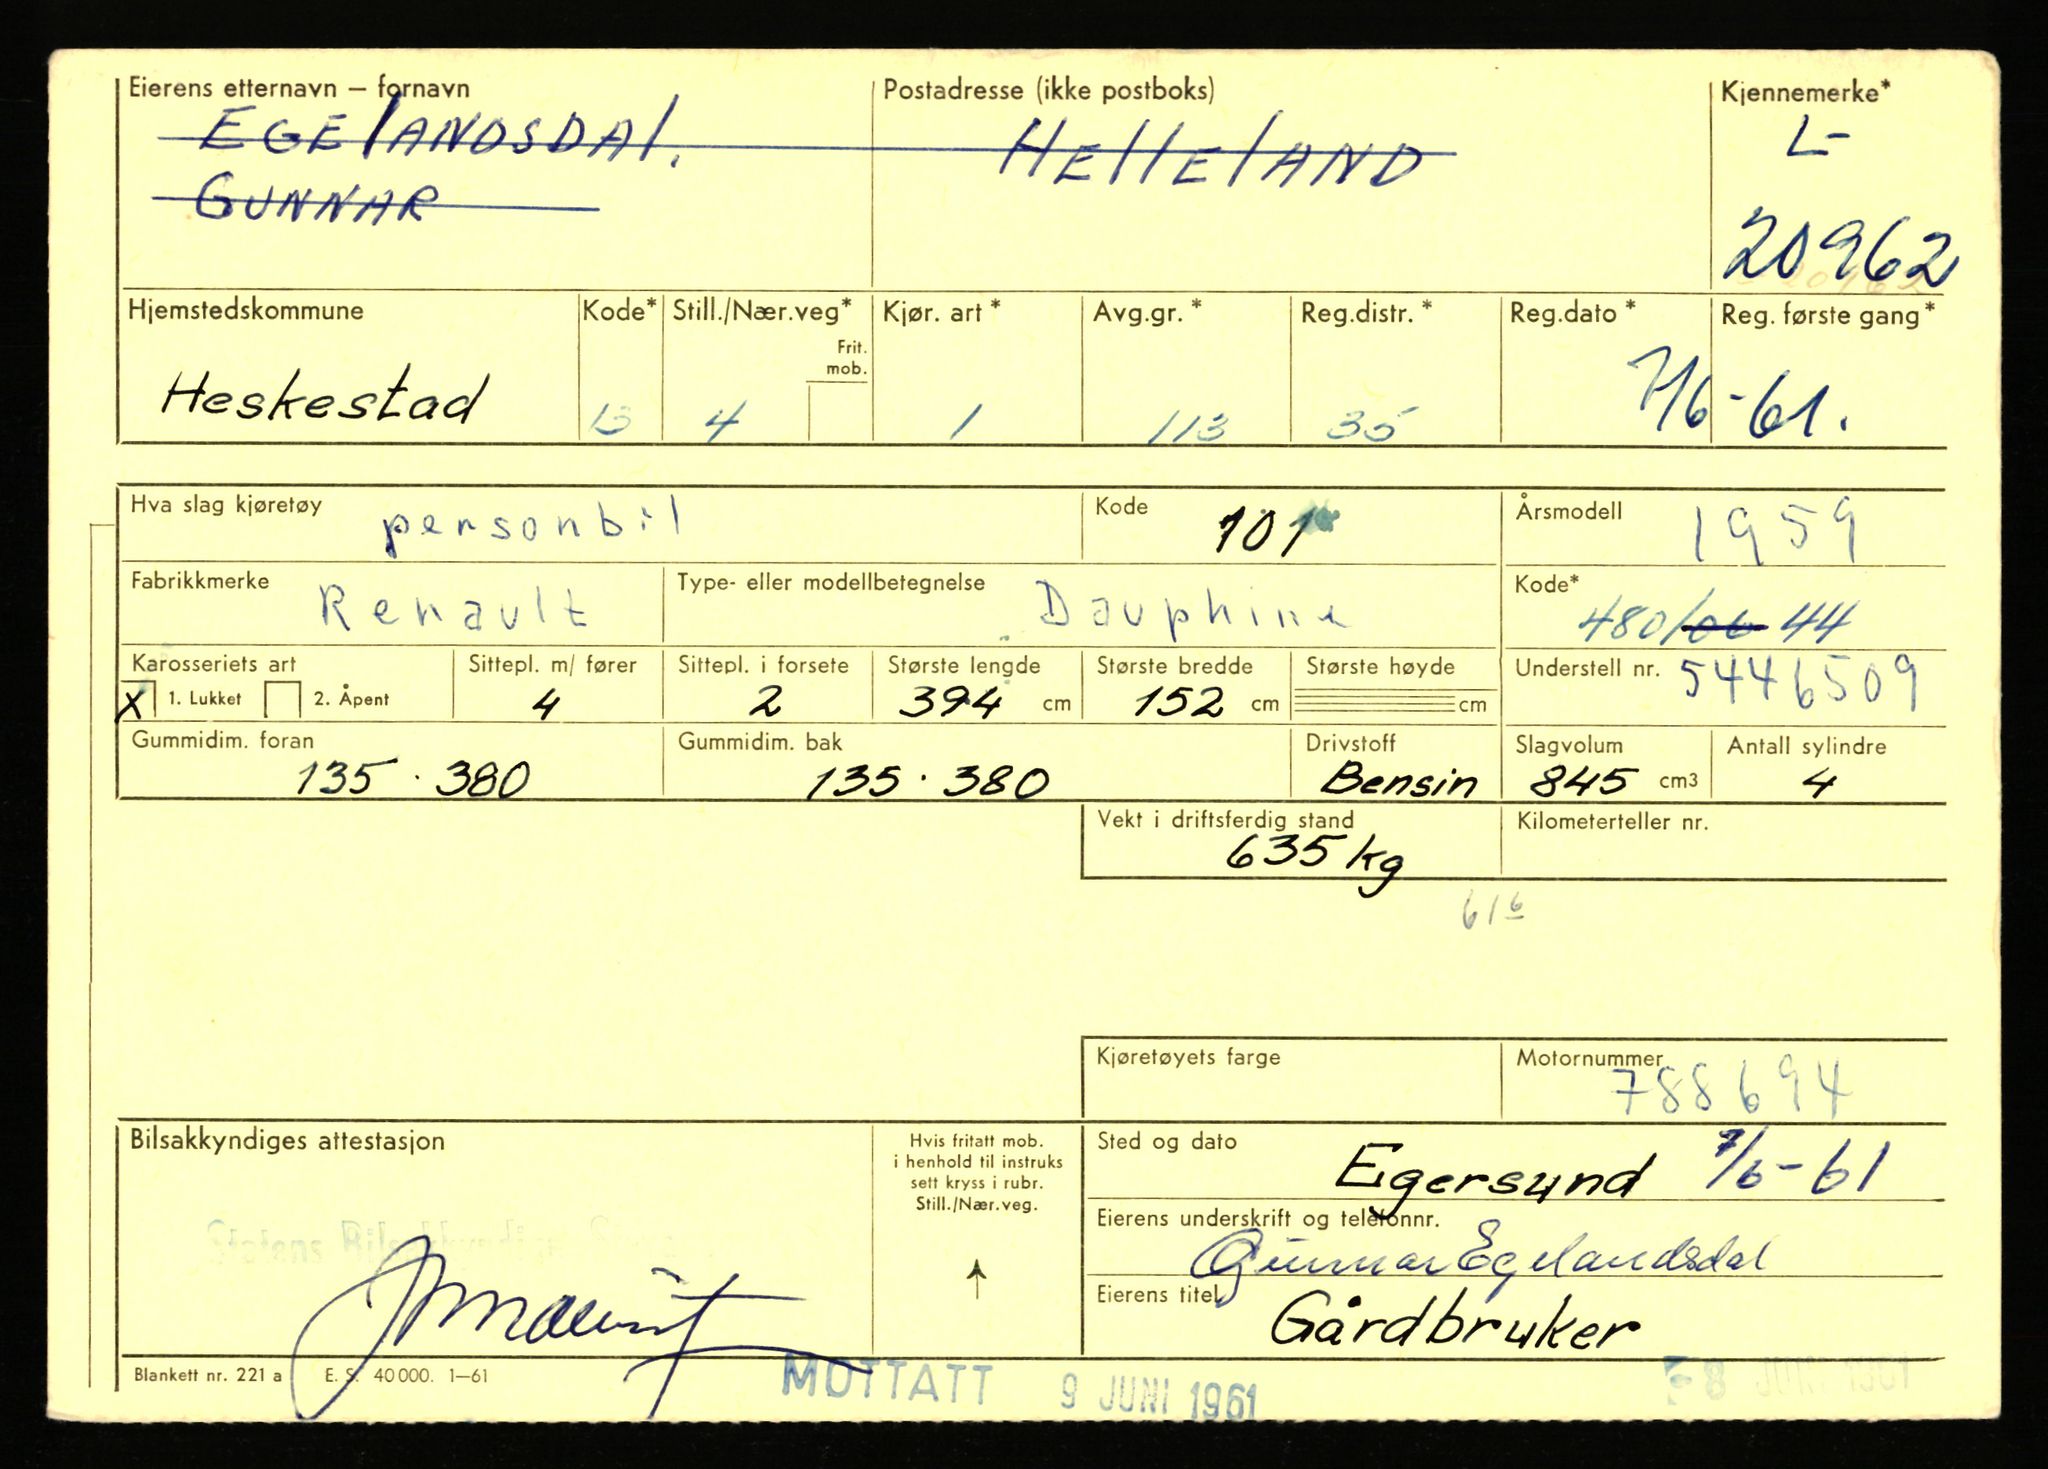 Eierens etternavn – fornavn Postadresse (ikke postboks) Kjennemerke*
EGELANDSDAL. HELLELAND L-
GUNNAR
20962
Hjemstedskommune Kode* Still./Nær.veg* Kjør. art* Avg.gr.* Reg.distr.* Reg.dato* Reg. første gang*
Frit.
mob.
Heskestad 13 4 1 113 35 7/6-61.
Hva slag kjøretøy personbil Kode 101 Årsmodell 1959
Fabrikkmerke Renault Type- eller modellbetegnelse Dauphine Kode*
480/06 44
Karosseriets art Sittepl. m/ fører Sittepl. i forsete Største lengde Største bredde Største høyde Understell nr. 5446509
X 1. Lukket 2. Åpent 4 2 394 cm 152 cm cm
Gummidim. foran Gummidim. bak Drivstoff Slagvolum Antall sylindre
135 · 380 135 · 380 Bensin 845 cm3 4
Vekt i driftsferdig stand Kilometerteller nr.
635 kg
61 6
Kjøretøyets farge Motornummer
788694
Bilsakkyndiges attestasjon Hvis fritatt mob.
i henhold til instruks
sett kryss i rubr.
Still./Nær.veg.
Sted og dato Egersund 7/6-61
Eierens underskrift og telefonnr.
Gunnar Egelandsdal
Statens Bilsakkyndige
Eierens titel
Gårdbruker
Blankett nr. 221 a E. S. 40 000. 1—61
MOTTATT 9 JUNI 1961 8 JUNI 1961